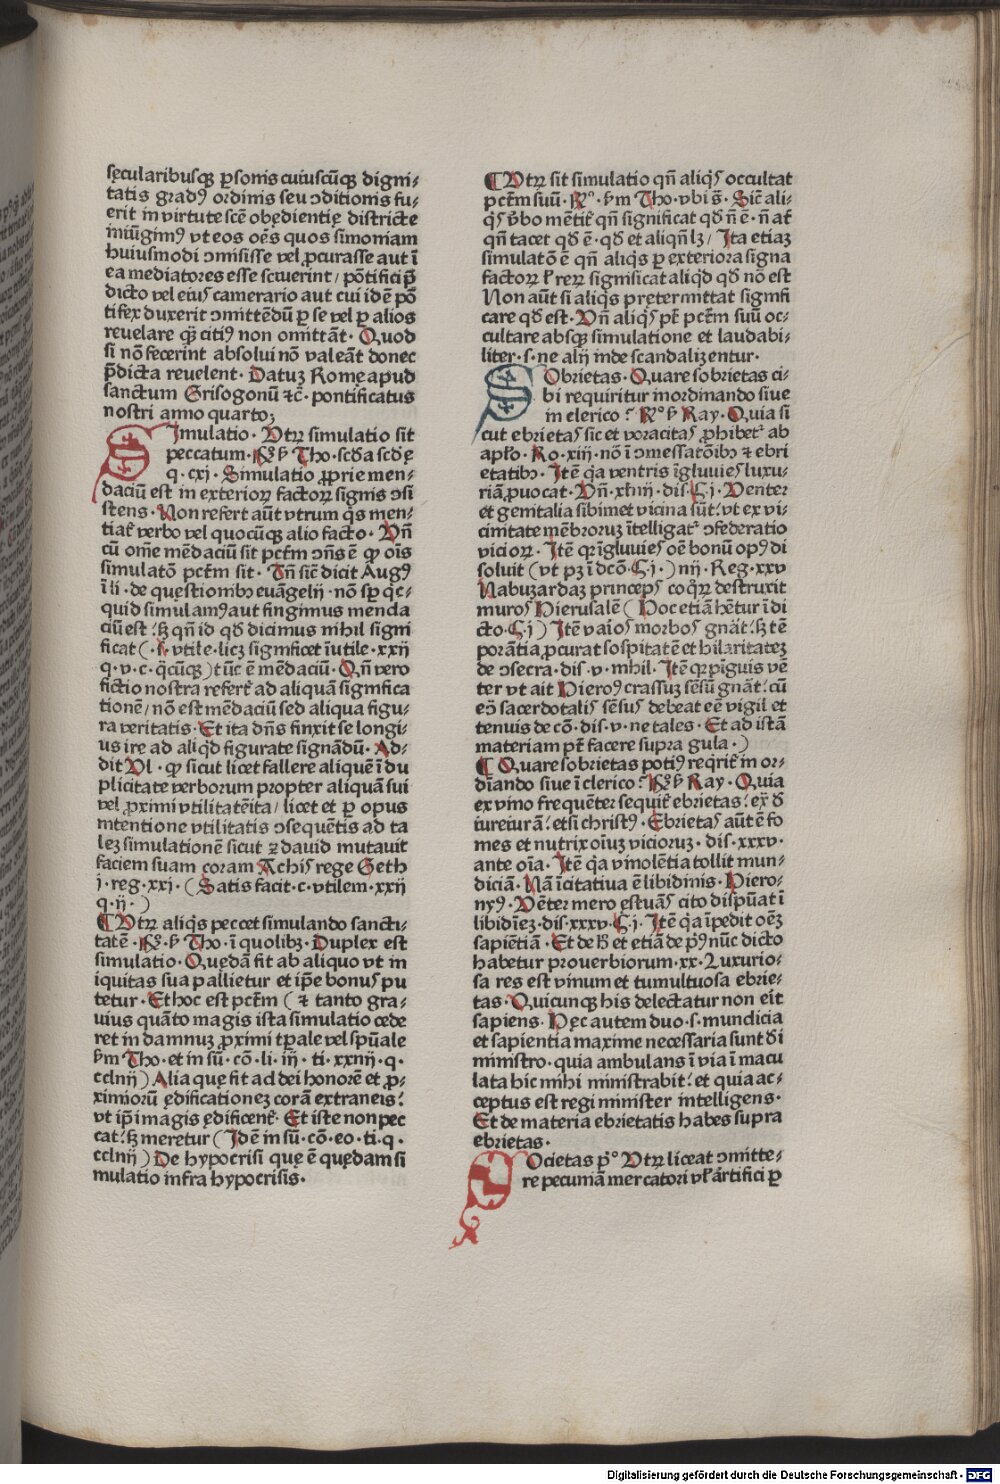 sęcularibusqꝫ ꝑsonis cuiuscūqꝫ digni⸗
tatis gradꝰ ordinis seu ↄditionis fu⸗
erit in virtute scē obędientię districte
iniūgimꝰ vt eos oēs quos simoniam
huiusmodi ↄmisisse vel ꝓcurasse aut ī
ea mediatores esse scīuerint / pōtifici p̄
dicto vel eiuſ camerario aut cui idē pō
tifex duxerit ↄmittēdū ꝑ se vel ꝑ alios
reuelare qꝫ citiꝰ non omittāt· Quod
si nō fecerint absolui nō valeāt donec
p̄dicta reuelent· Datuꝫ Romę apud
sanctum Grisogonū ⁊c̄· pontificatus
nostri anno quarto;
Simulatio· Vtꝝ simulatio sit
peccatum· Rº ẜ Tho· scd̄a scd̄ę
q· cxj· Simulatio ꝓprie men⸗
daciū est in exterioꝝ factoꝝ signis ↄsi
stens· Non refert aūt vtrum q̇s men⸗
tiat᷑ verbo vel quocūqꝫ alio facto· Vn̄
cū om̄e mēdaciū sit pctm̄ ↄn̄s ē ꝙ oīs
simulatō pctm̄ sit· Tn̄ siē dicit Augꝰ
ī li· de quęstionibꝫ euāgelij· nō sꝑ qc̄⸗
quid simulamꝰ aut fingimus menda
ciū est· sꝫ qn̄ id qd̄ dicimus nihil signi
ficat (·s· vtile· licꝫ significet īutile· xxij
q· v· c· q̇cūqꝫ) tūc ē mēdaciū· Qn̄ vero
fictio nostra refert᷑ ad aliquā significa
tionē / nō est mēdaciū sed aliqua figu⸗
ra veritatis· Et ita dn̄s finxit se longi⸗
us ire ad aliq̇d figurate signādū· Ad⸗
dit Vl· ꝙ sicut licet fallere aliquē ī du
plicitate verborum propter aliquā sui
vel ꝓximi vtilitatē ita / licet et ꝑ opus
intentione vtilitatis ↄsequētis ad ta
leꝫ simulationē sicut ⁊ dauid mutauit
faciem suam coram Achiſ rege Geth
j· reg· xxj· (Satis facit· c· vtilem· xxij
q· ij· )
¶Vtꝝ aliq̇s peccet simulando sancti⸗
tatē· Rº· ẜ Tho· ī quolibꝫ· Duplex est
simulatio· Quędam fit ab aliquo vt in
iquitas sua pallietur et ip̄e bonuſ pu
tetur· Et hoc est pctm̄ (⁊ tanto gra⸗
vius quāto magis ista simulatio cede
ret in damnuꝫ ꝓximi tꝑale vel sp̄uale
ẜm Tho· et in sū· cō· li· iij· ti· xxnij· q·
cclnij) Alia quę fit ad dei honorē et ꝓ⸗
ximiorū ędificationeꝫ corā extraneis·
vt ip̄i magis ędificent᷑· Et iste non pec
cat· sꝫ meretur (Idē in sū· cō· eo· ti· q·
cclnij) De hypocrisi quę ē quędam si
mulatio infra hypocrisis·
¶Vtꝝ sit simulatio qn̄ aliq̇ſ occultat
pctm̄ suū· Rº· ẜm Tho· vbi s̄· Siē ali⸗
q̇ſ v̄bo mētit᷑ qn̄ significat qd̄ n̄ ē· n̄ at᷑
qn̄ tacet qd̄ ē· qd̄ et aliqn̄ lꝫ / Ita etiaꝫ
simulatō ē qn̄ aliq̇s ꝑ exteriora signa
factoꝝ ł reꝝ significat aliq̇d qd̄ nō est
Non aūt si aliq̇s pręter mittat signifi
care qd̄ est· Vn̄ aliq̇ſ pt̄ pctm̄ suū oc⸗
cultare absqꝫ simulatione et laudabi⸗
liter· s· ne alij inde scandalizentur·
Sobrietas· Quare sobrietas ci⸗
bi requiritur in ordinando siue
in clerico? Rº ẜ Ray· Quia si
cut ebrietaſ sic et voracitaſ ꝓhibet᷑ ab
apło· Ro· xiij· nō ī ↄmessatōibꝫ ⁊ ebri
etatibꝫ· Itē q̇a ventris īgluuieſ luxu⸗
riā ꝓuocat· Vn̄· xłnij· dis· C̨ j· Venter
et genitalia sibimet vicina sūt· vt ex vi⸗
cinitate mēbroruꝫ ītelligat᷑ ↄfederatio
vicioꝝ· Itē qꝛ īgluuieſ oē bonū opꝰ di
soluit (vt pꝫ ī dcō· C̨ j· ) nij· Reg· xxv
Nabuzardaꝫ princepſ coq̇ꝝ destruxit
muroſ Hierusalē (Hoc etiā hētur ī di
cto· C̨ j) Itē vaīoſ morboſ gnāt· sꝫ tē
porātia ꝓcurat sospitatē et hilaritateꝫ
de ↄsecra· dis· v· nihil· Itē qꝛ pīguis vē
ter vt ait Hieroꝰ crassuꝫ sēsū gnāt· cū
eō sacerdotaliſ sēsuſ debeat eē vigil et
tenuis de cō· dis· v· ne tales· Et ad istā
materiam pt̄ facere supra gula· )
¶Quare sobrietas potiꝰ reqrit᷑ in or⸗
dīando siue ī clerico? Rº ẜ Ray· Quia
ex vino frequēter sequit᷑ ebrietas· eꝫ d̄
iureiurā· et si christꝰ· Ebrietaſ aūt ē fo
mes et nutrix oīuꝫ vicioruꝫ· dis· xxxv·
ante oīa· Itē q̇a vinolētia tollit mun⸗
diciā· Nā īcitatiua ē libidinis· Hiero⸗
nyꝰ· Vēter mero ęstuāſ cito dispūat ī
libidīeꝫ· dis· xxxv· C̨ j· Itē q̇a īpedit oēꝫ
sapiētiā· Et de h̄ et etiā de p̄ꝰ nūc dicto
habetur prouerbiorum· xx· Luxurio⸗
sa res est vinum et tumultuosa ebrie⸗
tas· Quicunqꝫ his delectatur non eīt
sapiens· Hęc autem duo· s· mundicia
et sapientia maxime necessaria sunt d̄i
ministro· quia ambulans ī via ī macu
lata hic mihi ministrabit· et quia ac⸗
ceptus est regi minister intelligens·
Et de materia ebrietatis habes supra
ebrietas·
Societas pº Vtꝝ liceat ↄmitte⸗
re pecuniā mercatori vł artifici ꝑ
Digitalisierung gefördert durch die Deutsche Forschungsgemeinschaft · DFG